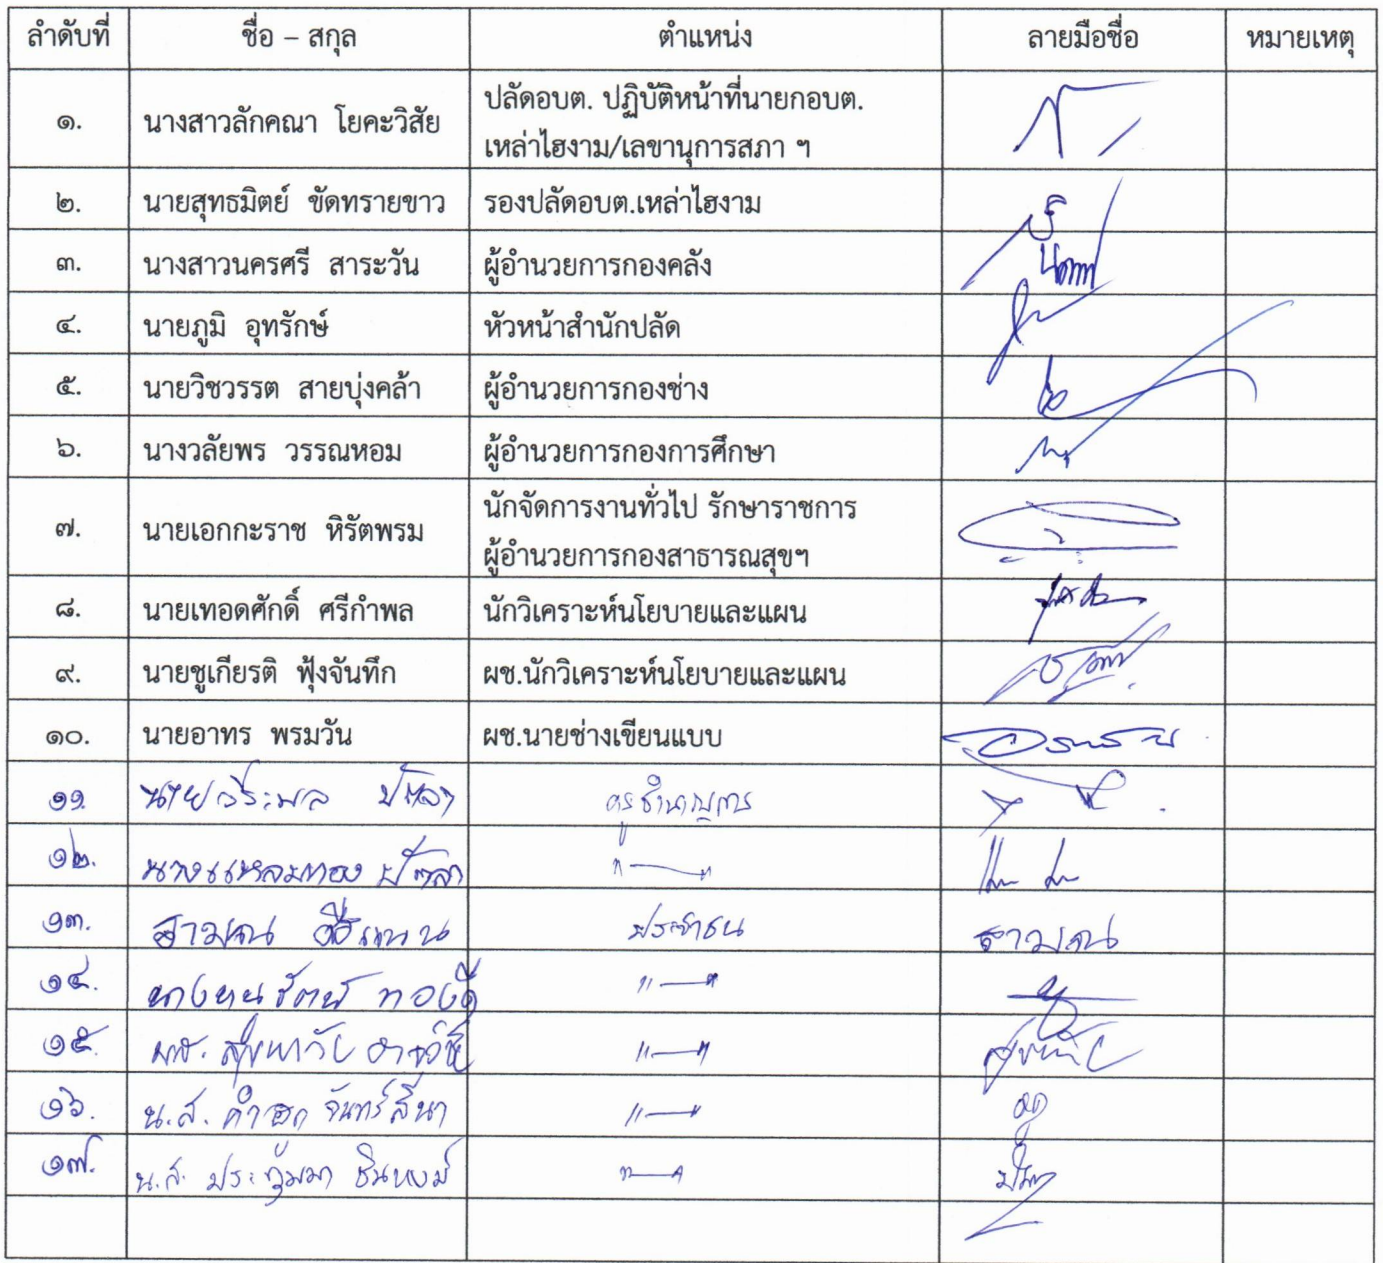 ลำดับที่ ชื่อ – สกุล ตำแหน่ง ลายมือชื่อ หมายเหตุ
๑. นางสาวลักคณา โยคะวิสัย ปลัดอบต. ปฏิบัติหน้าที่นายกอบต.
เหล่าไฮงาม/เลขานุการสภา ฯ
๒. นายสุทธมิตย์ ขัดทรายขาว รองปลัดอบต.เหล่าไฮงาม
๓. นางสาวนครศรี สาระวัน ผู้อำนวยการกองคลัง
๔. นายภูมิ อุทรักษ์ หัวหน้าสำนักปลัด
๕. นายวิชวรรต สายบุ่งคล้า ผู้อำนวยการกองช่าง
๖. นางวลัยพร วรรณหอม ผู้อำนวยการกองการศึกษา
๗. นายเอกกะราช หิรัตพรม นักจัดการงานทั่วไป รักษาราชการ
ผู้อำนวยการกองสาธารณสุขฯ
๘. นายเทอดศักดิ์ ศรีกำพล นักวิเคราะห์นโยบายและแผน
๙. นายชูเกียรติ ฟุ้งจันทึก ผช.นักวิเคราะห์นโยบายและแผน
๑๐. นายอาทร พรมวัน ผช.นายช่างเขียนแบบ
๑๑ นายวีระพล ปัตลา ครูชำนาญการ
๑๒. นางแหลมทอง ปัตลา "—"
๑๓. ประชาชน
๑๔. ทองดี "—"
๑๕. "—"
๑๖. น.ส. จันทร์สีนา "—"
๑๗. น.ส. ชินหงษ์ "—"